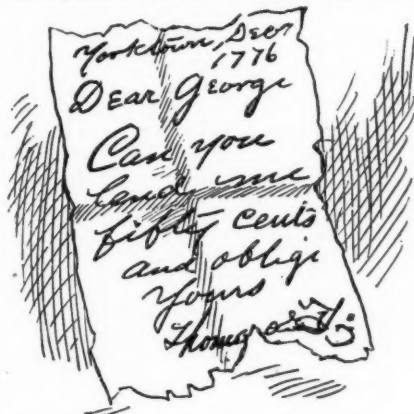 Yorktown, Decr
1776
Dear George
Can you
lend me
fifty cents
and oblige
Yours
Thomas